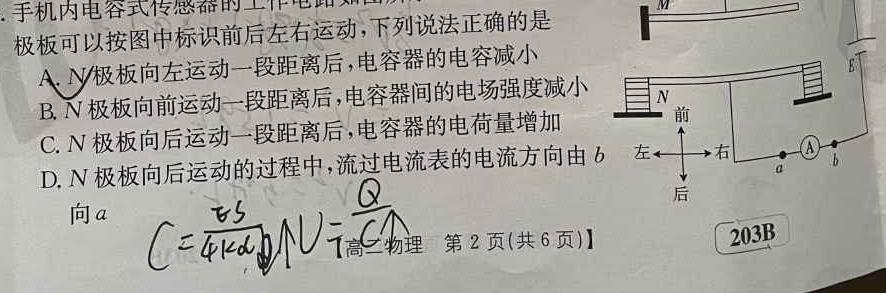 . 手机内电容式传感器的工作电路如图所
极板可以按图中标识前后左右运动,下列说法正确的是
A. N极板向左运动一段距离后,电容器的电容减小
B. N极板向前运动一段距离后,电容器间的电场强度减小
C. N极板向后运动一段距离后,电容器的电荷量增加
D. N极板向后运动的过程中,流过电流表的电流方向由b
向a
M
E
N
前
左 右
后
A
a b
C=εS/4kd
U=Q/C↑
高二物理 第2页(共6页)】
203B